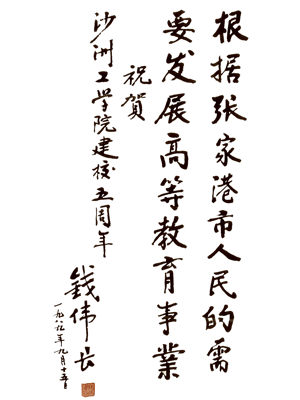 根据张家港市人民的需
要发展高等教育事業
祝贺
沙洲工学院建校五周年
钱伟长
一九八九年九月十五日